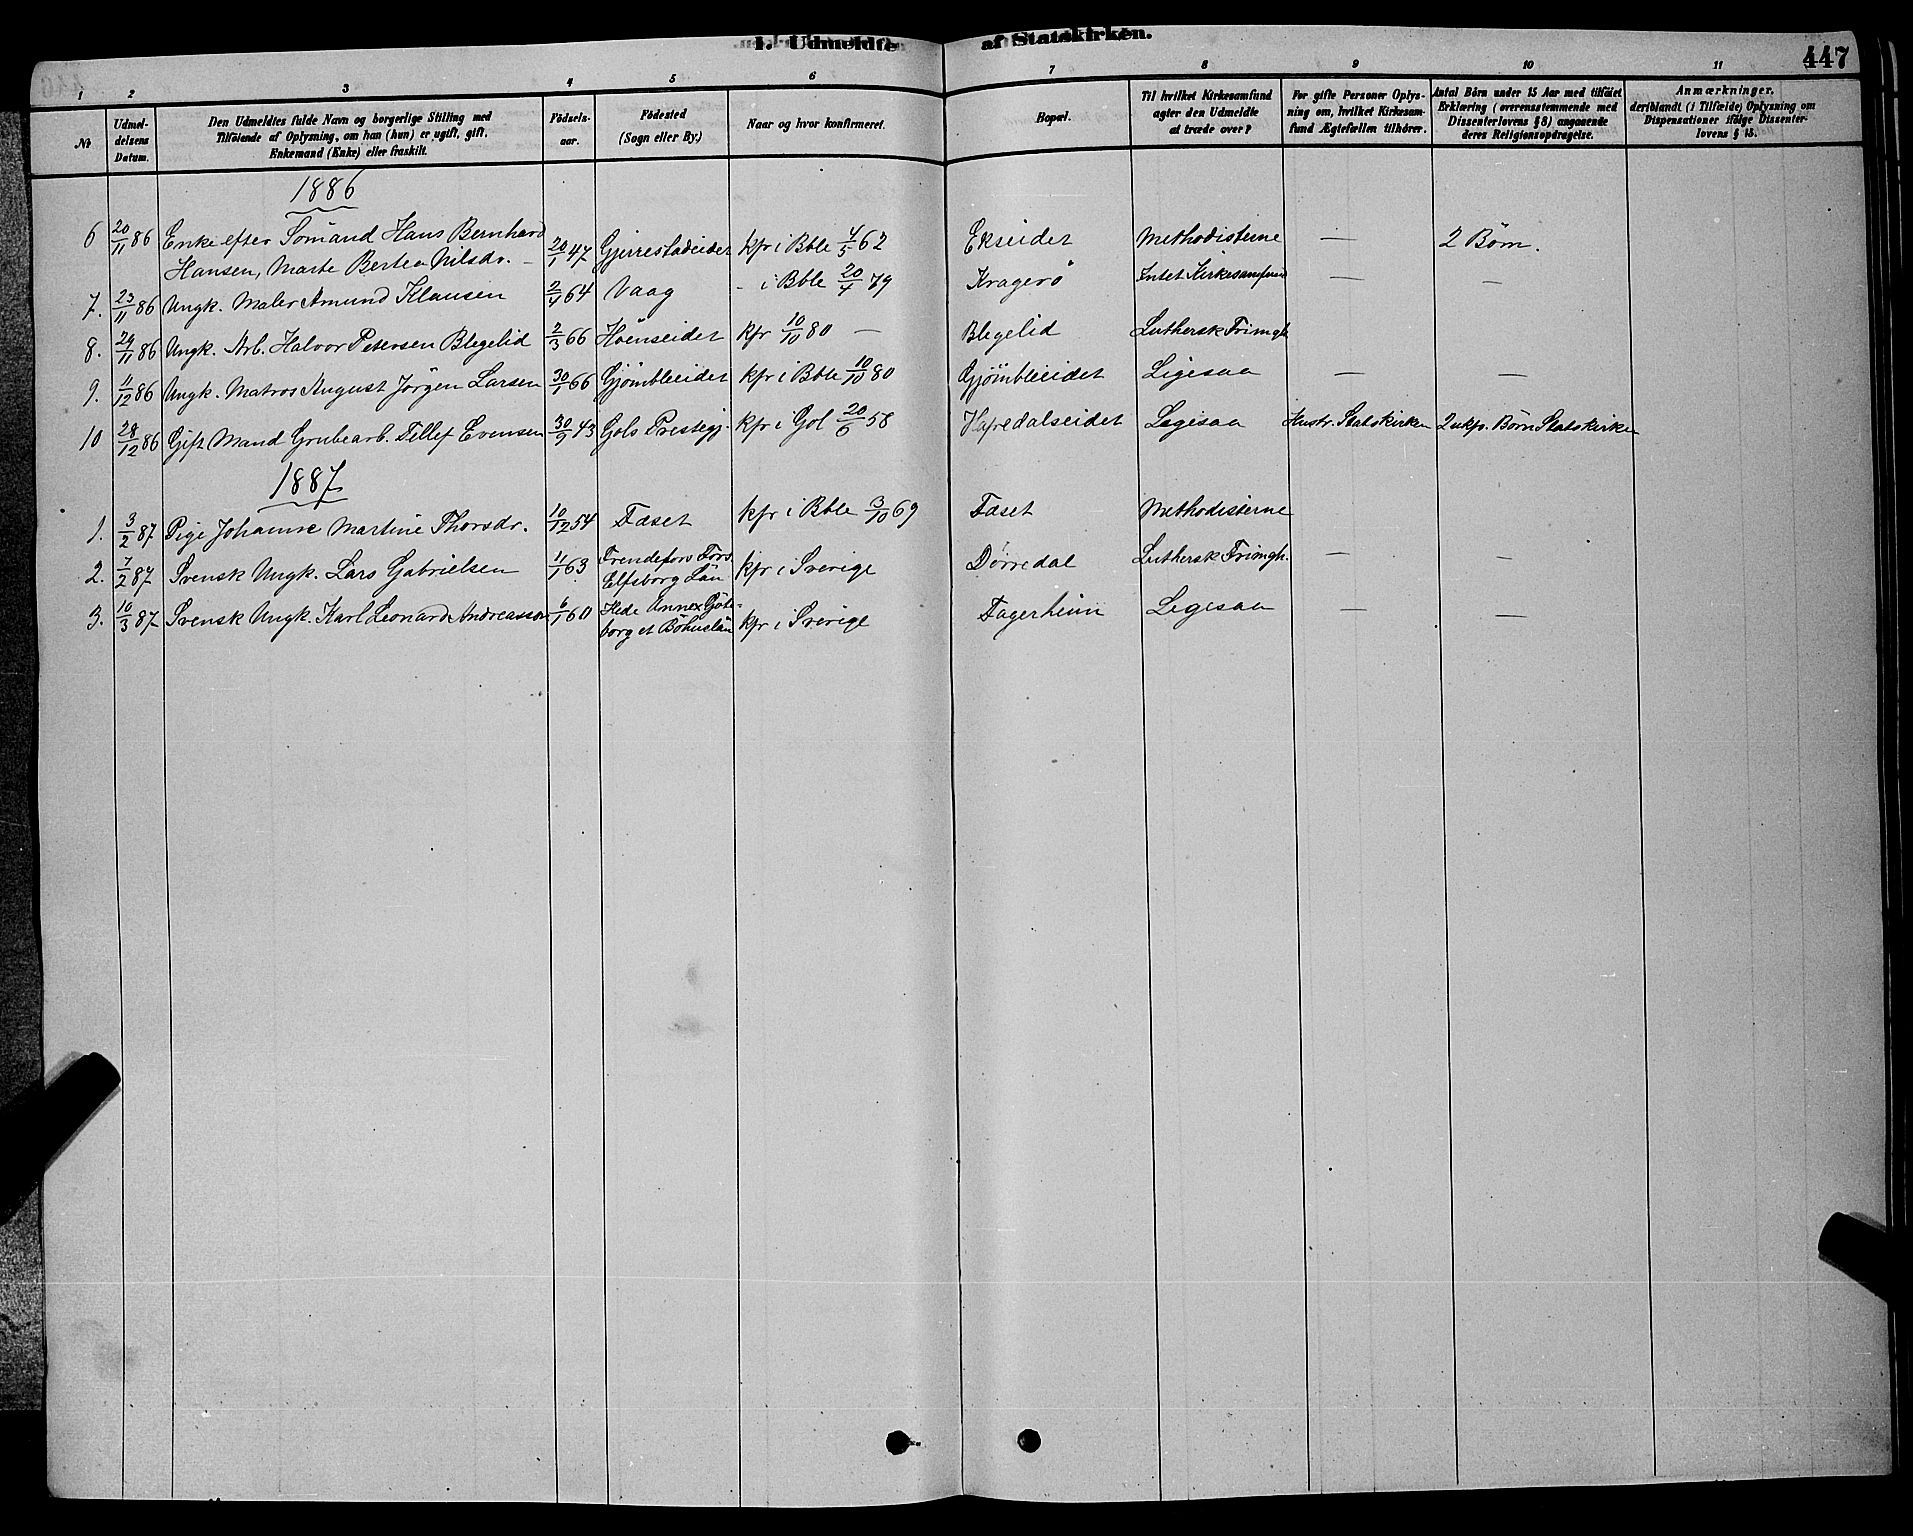 1. Udmeldte af Statskirken.
447
1 2 3 4 5 6 7 8 9 10 11
No
Udmel-
delsens
Datum.
Den Udmeldtes fulde Navn og borgerlige Stilling med
Tilföiende af Oplysning, om han (hun) er ugift, gift,
Enkemand (Enke) eller fraskilt.
Födsels-
aar.
Födested
(Sogn eller By.)
Naar og hvor konfirmeret.
Bopæl.
Til hvilket Kirkesamfund
agter den Udmeldte
at træde over?
For gifte Personer Oplys-
ning om, hvilket Kirkesam-
fund Ægtefællen tilhörer.
Antal Börn under 15 Aar med tilföiet
Erklæring (overensstemmende med
Dissenterlovens § 8) angaaende
deres Religionsopdragelse.
Anmærkninger,
deriblandt (i Tilfælde) Oplysning om
Dispensationer ifölge Dissenter-
lovens § 15.
1886
6 20/11 86 Enke efter Sömand Hans Bernhard
Hansen, Marte Bertea Nilsdr. – 20/1 47 Gjerrestadeidet kfr i Bble 4/5 62 Ekseidet Methodisterne — 2 Börn.
7. 23/11 86 Ungk. Maler Amund Klausen 2/4 64 Vaag - i Bble 20/4 79 Kragerö Intet Kirkesamfund — —
8. 29/11 86 Ungk. Arb. Halvor Petersen Blegelid 2/3 66 Höenseidet kfr 10/10 80 — Blegelid Luthersk Frimgh
9. 11/12 86 Ungk. Matros August Jörgen Larsen 30/1 66 Gjömbleeidet kfr i Bble 10/10 80 Gjömbleeidet Ligesaa — —
10 28/12 86 Gift Mand Grubearb. Tellef Evensen 30/9 43 Gols Prestegj. kfr i Gol 20/6 58 Hafredalseidet Ligesaa Hustr. Statskirken 2 ukf. Börn Statskirken
1887
1. 3/2 87 Pige Johanne Martine Thorsdr. 10/12 54 Fæset kfr i Bble 3/10 69 Fæset Methodisterne
2. 7/2 87 Svensk Ungk. Lars Gabrielsen 11/1 63 Frendefors Förs.
Elfsborg Län kfr i Sverige Dörredal Luthersk Frimgh. — —
3. 10/3 87 Svensk Ungk. Karl Leonard Andreasson 6/1 60 Hede Annex Göte-
borg et Bohuslän kfr i Sverige Fagerheim Ligesaa — —